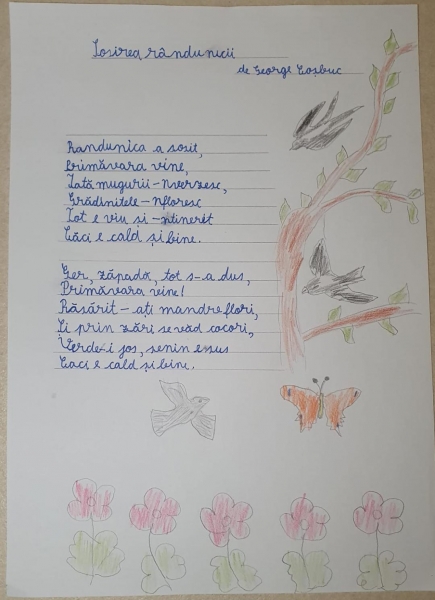 Sosirea rândunicii
de George Coșbuc
Randunica a sosit,
Primăvara vine,
Iată mugurii-nverzesc,
Grădinitele-nfloresc
Tot e viu si-ntinerit
Căci e cald și bine.
Ger, zăpadă, tot s-a dus,
Primăvara vine!
Răsărit-ați mandre flori,
Și prin zări se văd cocori,
Verde-i jos, senin e sus
Caci e cald și bine.